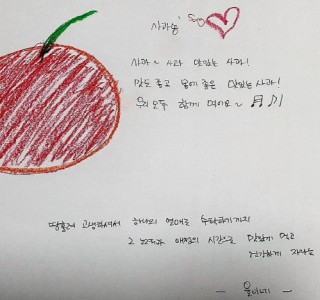 사과송
사과~ 사과 맛있는 사과!
맛도 좋고 몸에 좋은 맛있는 사과!
우리 모두 함께 먹어요~
땀흘려 고생하셔서 하나의 열매로 수확하기까지
그 노력과 애정의 시간으로 맛있게 먹고
건강하게 자라는